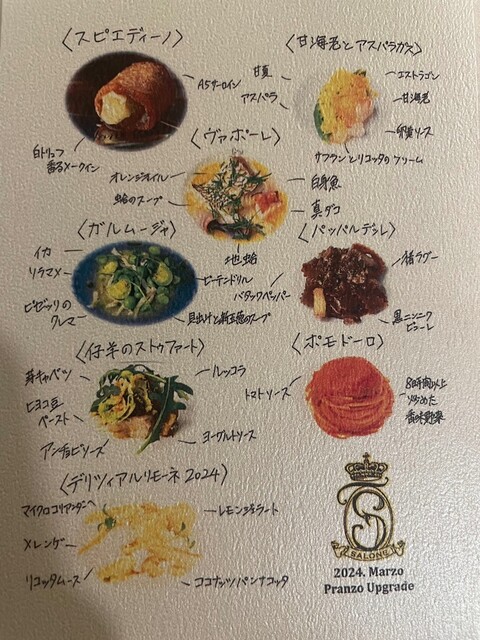 〈スピエディーノ〉
A5サーロイン
白トリュフ
香るメークイン
〈甘海老とアスパラガス〉
甘夏
アスパラ
エストラゴン
甘海老
卵黄ソース
サフランとリコッタのクリーム
〈ヴァポーレ〉
オレンジオイル
蛤のスープ
白身魚
真ダコ
地蛤
〈ガルムージャ〉
イカ
ソラマメ
ピゼッリの
クレマ
ビーテンドリル
貝出汁と新玉葱のスープ
〈パッパルデッレ〉
バタックペッパー
猪ラグー
黒ニンニク
ピューレ
〈仔羊のストゥファート〉
芽キャベツ
ヒヨコ豆
ペースト
アンチョビソース
ルッコラ
ヨーグルトソース
〈ポモドーロ〉
トマトソース
8時間以上
炒めた
香味野菜
〈デリツィアルリモーネ2024〉
マイクロコリアンダー
メレンゲ
リコッタムース
レモンジェラート
ココナッツパンナコッタ
TS
SALONE
2024. Marzo
Pranzo Upgrade